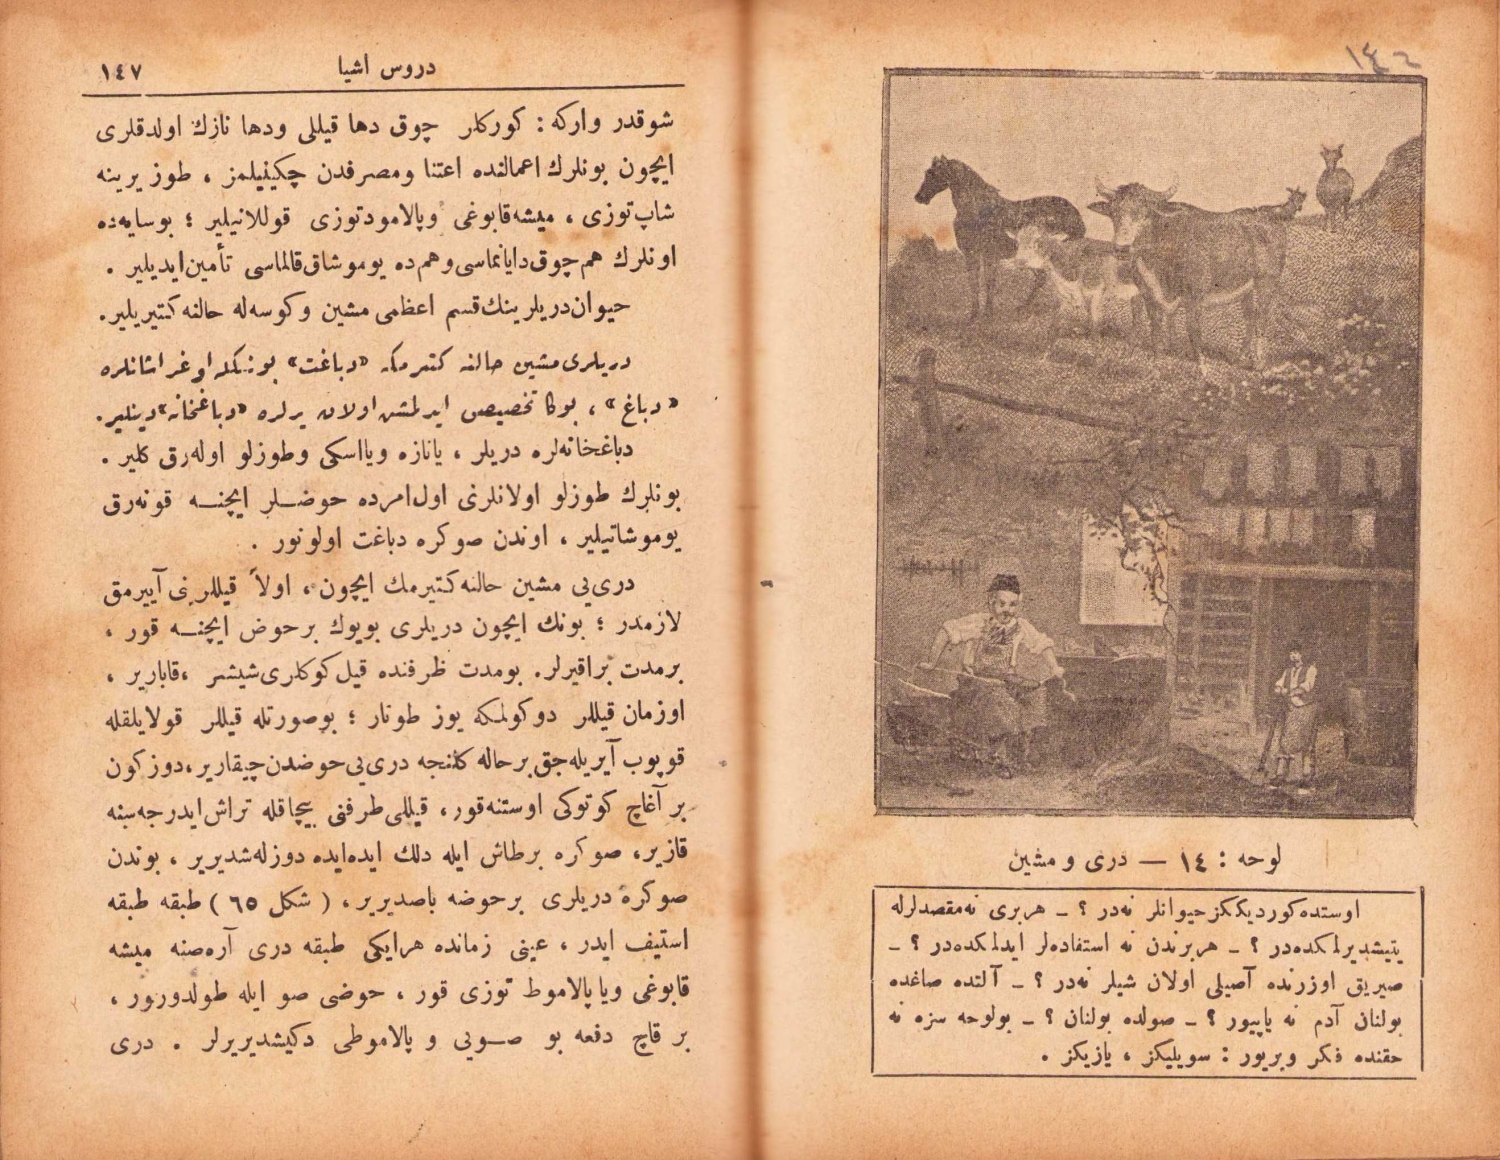 ١٤٦
لوحه : ١٤ — درى و مشين
اوستده كورديككز حيوانلر نه‌در ؟ ـ هربرى نه مقصدلرله
يتيشديرلمكده‌در ؟ ـ هربرندن نه استفاده‌لر ايدلمكده‌در ؟ ـ
صيريق اوزرنده آصيلى اولان شيلر نه‌در ؟ ـ آلتده صاغده
بولنان آدم نه ياپيور ؟ ـ صولده بولنان ؟ ـ بولوحه سزه نه
حقنده فكر ويريور : سويليكز ، يازيكز .
دروس اشيا
١٤٧
شوقدر واركه : كوركلر چوق دها قيللى ودها نازك اولدقلرى
ايچون بونلرك اعمالنده اعتنا ومصرفدن چكينيلمز ، طوز يرينه
شاپ توزى ، ميشه قابوغى وپالامود توزى قوللانيلير ؛ بوسايه‌ده
اونلرك هم چوق دايانماسى وهم ده يوموشاق قالماسى تأمين ايديلير .
حيوان دريلرينك قسم اعظمى مشين وكوسه‌له حالنه كتيريلير.
دريلرى مشين حالنه كتيرمكه «دباغت» بونكله اوغراشانلره
«دباغ» ، بوكا تخصيص ايدلمش اولان يرلره «دباغخانه» دينلير.
دباغخانه‌لره دريلر ، ياتازه وياسكى وطوزلو اوله‌رق كلير .
بونلرك طوزلو اولانلرنى اول امرده حوضلر ايچنه قونه‌رق
يوموشاتيلير ، اوندن صوكره دباغت اولونور .
درى‌يى مشين حالنه كتيرمك ايچون ، اولاً قيللرنى آييرمق
لازمدر ؛ بونك ايچون دريلرى بويوك برحوض ايچنه قور ،
برمدت براقيرلر. بومدت ظرفنده قيل كوكلرى شيشر ، قابارير ،
اوزمان قيللر دوكولمكه يوز طوتار ؛ بوصورتله قيللر قولايلقله
قوپوب آيريله‌جق برحاله كلنجه درى‌يى حوضدن چيقارير، دوزكون
بر آغاچ كوتوكى اوستنه قور ، قيللى طرفنى بيچاقله تراش ايدرجه‌سنه
قازير، صوكره برطاش ايله دلك ايده‌ايده دوزله‌شديرير ، بوندن
صوكره دريلرى برحوضه باصديرير ، ( شكل ٦٥ ) طبقه طبقه
استيف ايدر ، عينى زمانده هرايكى طبقه درى آره‌صنه ميشه
قابوغى ويا پالاموط توزى قور ، حوضى صو ايله طولدورور ،
بر قاچ دفعه بو صويى و پالاموطى دكيشديريرلر . درى